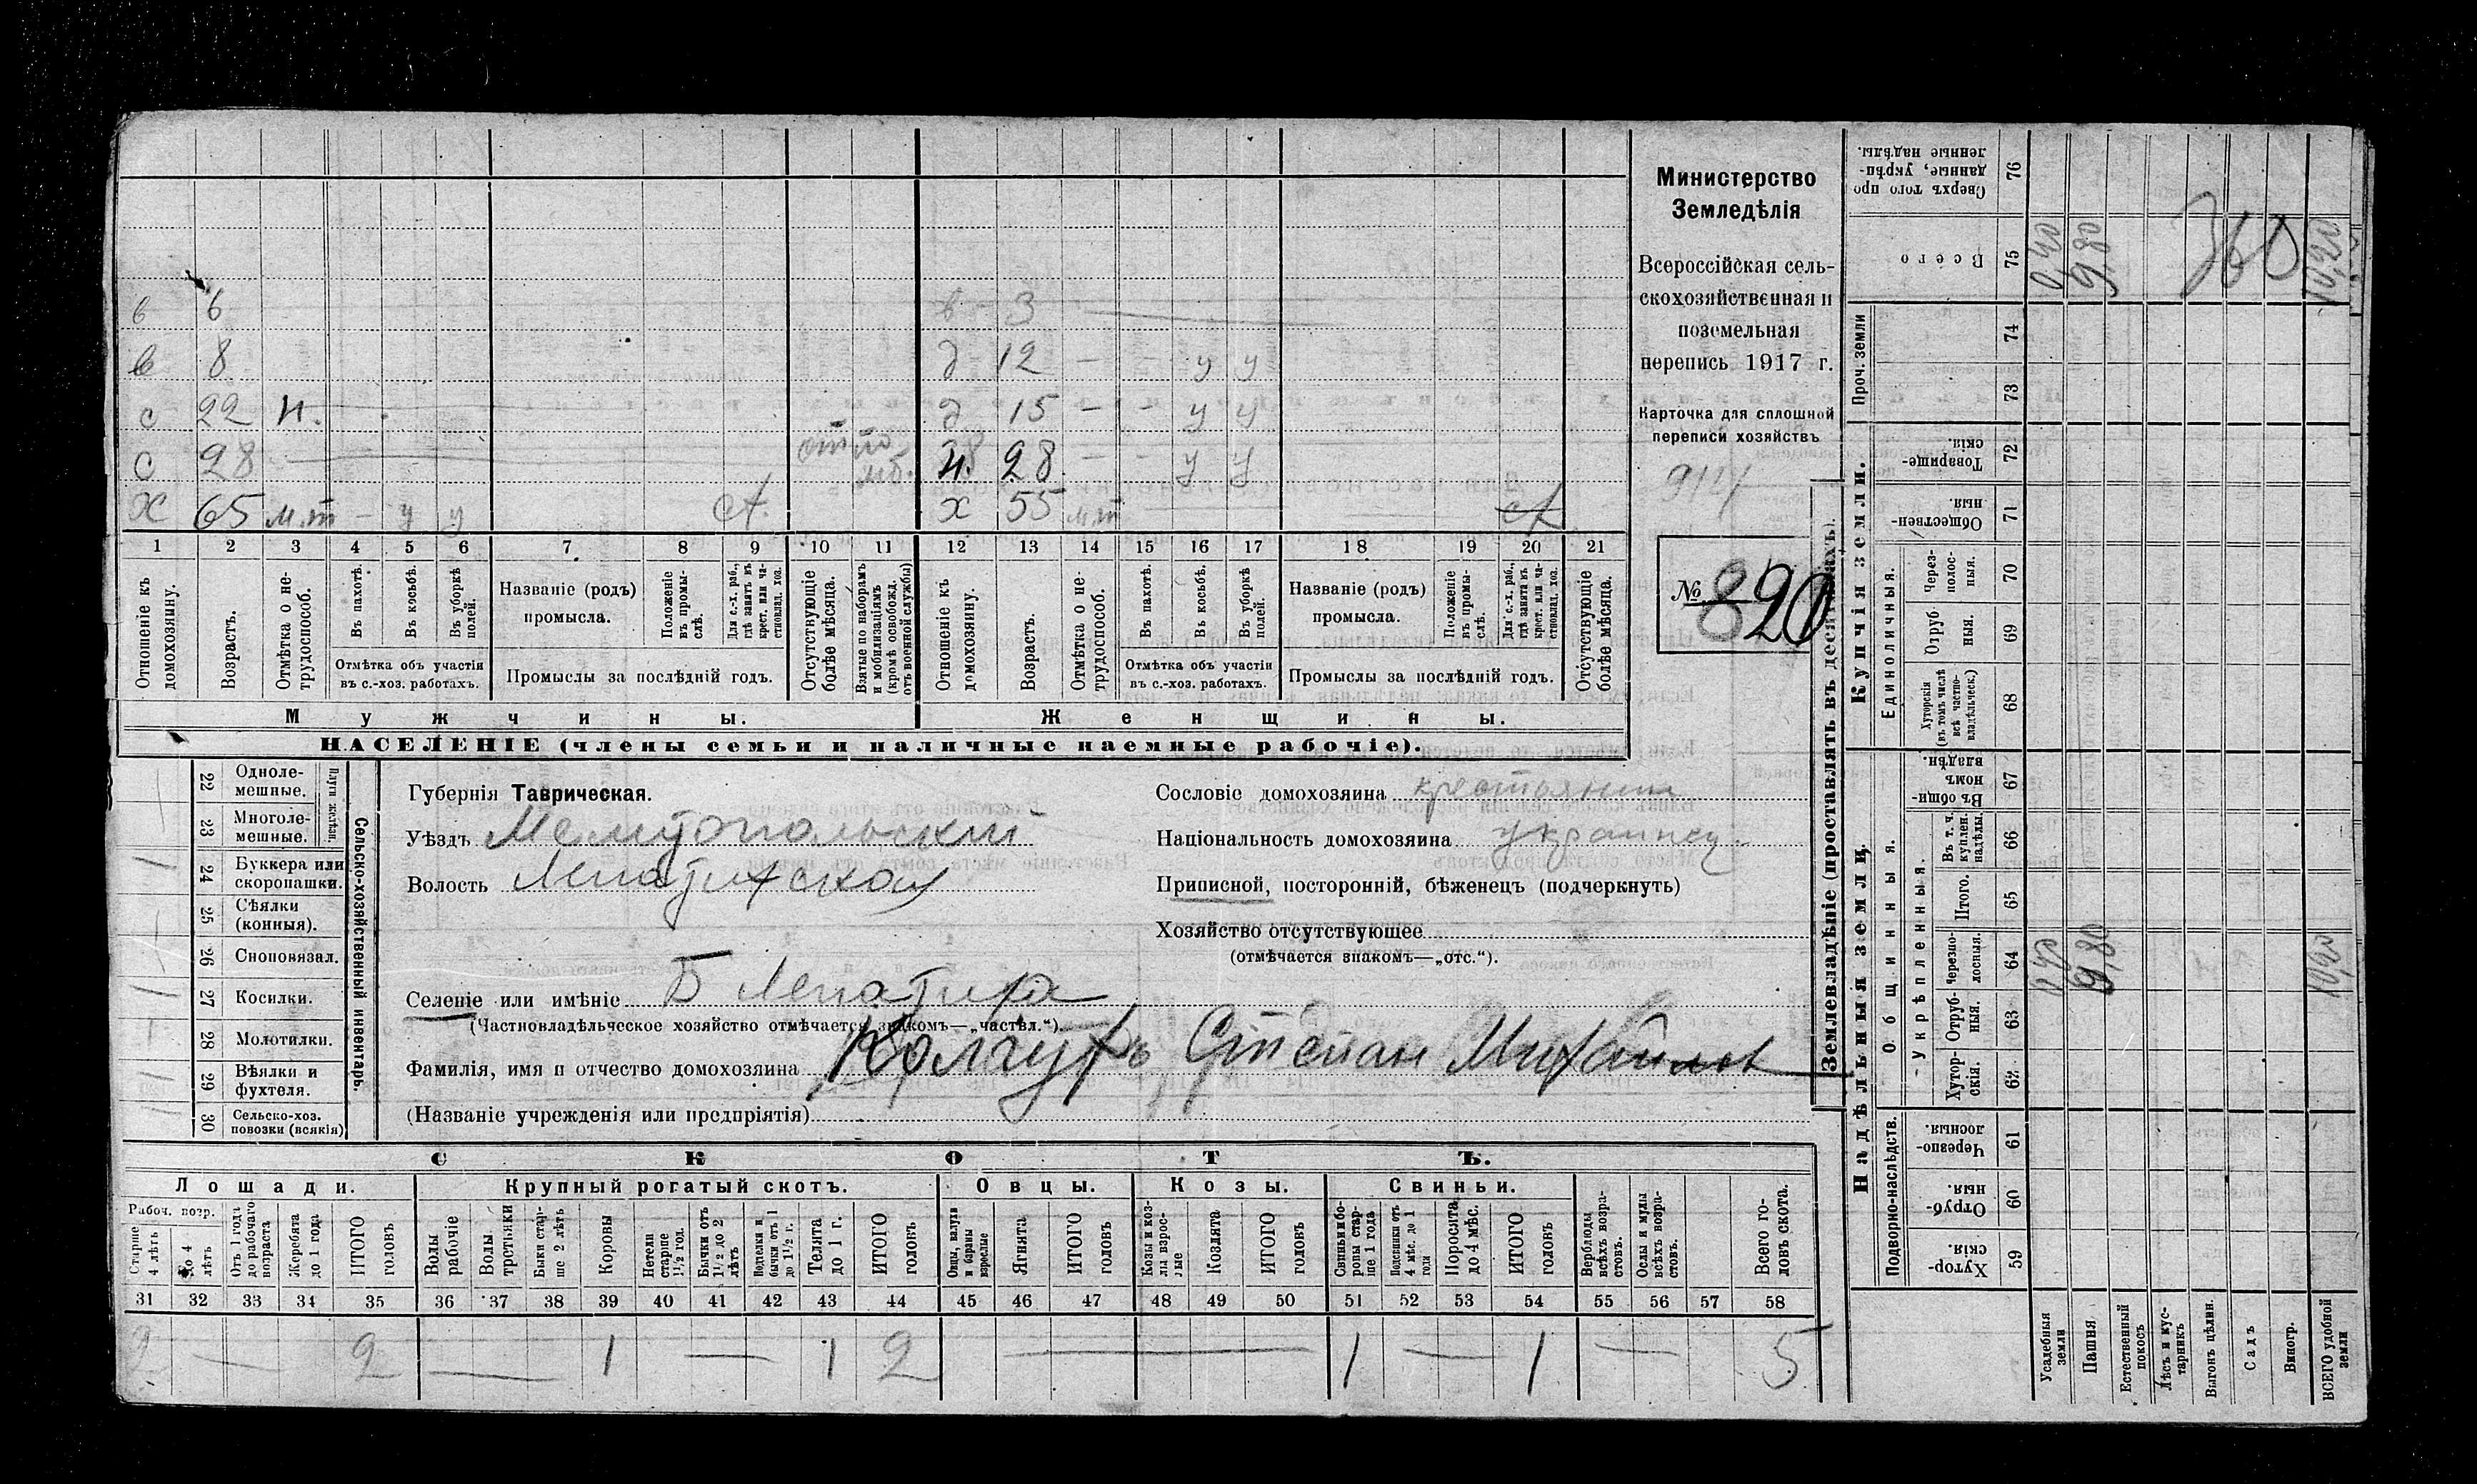 в 6 в 3
в 8 д 12 — — у у
с 22 н. д 15 — — у у
с 28 н. 28 — — у у
Х 65 м.т — у у х 55 м.т
1 2 3 4 5 6 7 8 9 10 11 12 13 14 15 16 17 18 19 20 21
Отношеніе къ домохозяину.
Возрастъ.
Отмѣтка о не-
трудоспособ.
Въ пахотѣ.
Въ косьбѣ.
Въ уборкѣ
полей.
Отмѣтка объ участіи
въ с.-хоз. работахъ.
Названіе (родъ)
промысла.
Положеніе
въ промы-
слѣ.
Для с.-х. раб.,
гдѣ занятъ въ
крест. или ча-
стновлад. хоз.
Промыслы за послѣдній годъ.
Отсутствующіе
болѣе мѣсяца.
Взятые по наборамъ
и мобилизаціямъ
(кромѣ освобожд.
отъ военной службы)
Отношеніе къ
домохозяину.
Возрастъ.
Отмѣтка о не-
трудоспособ.
Въ пахотѣ.
Въ косьбѣ.
Въ уборкѣ
полей.
Отмѣтка объ участіи
въ с.-хоз. работахъ.
Названіе (родъ)
промысла.
Положеніе
въ промы-
слѣ.
Для с.-х. раб.,
гдѣ занята въ
крест. или ча-
стновлад. хоз.
Промыслы за послѣдній годъ.
Отсутствующіе
болѣе мѣсяца.
Мужчины.
Женщины.
НАСЕЛЕНІЕ (члены семьи и наличные наемные рабочіе).
Министерство
Земледѣлія
Всероссійская сель-
скохозяйственная и
поземельная
перепись 1917 г.
Карточка для сплошной
переписи хозяйствъ
№ 820
22 Одноле-
мешные.
23 Многоле-
мешные.
Плуги желѣзн.
24 Буккера или
скоропашки.
25 Сѣялки
(конныя).
26 Сноповязал.
27 Косилки.
28 Молотилки.
29 Вѣялки и
фухтеля.
30 Сельско-хоз.
повозки (всякія)
Сельско-хозяйственный инвентарь.
Губернія Таврическая.
Уѣздъ Мелитопольский
Волость Лепатихская
Селеніе или имѣніе Б Лепатиха
(Частновладѣльческое хозяйство отмѣчается знакомъ—„частвл.“).
Фамилія, имя и отчество домохозяина Степан Михайлов
(Названіе учрежденія или предпріятія)
Сословіе домохозяина крестьянин
Національность домохозяина украинец
Приписной, посторонній, бѣженецъ (подчеркнуть)
Хозяйство отсутствующее
(отмѣчается знакомъ—„отс.“).
СКОТЪ.
Лошади. Крупный рогатый скотъ. Овцы. Козы. Свиньи.
Рабоч. возр.
Старше
4 лѣтъ
До 4
лѣтъ
Отъ 1 года
до рабочаго
возраста
Жеребята
до 1 года
ИТОГО
головъ
Волы
рабочіе
Волы
третьяки
Быки стар-
ше 2 лѣтъ
Коровы
Нетели
старше
1½ год.
Бычки отъ
1½ до 2
лѣтъ
Подтелки и
бычки отъ 1
до 1½ г.
Телята
до 1 г.
ИТОГО
головъ
Овцы, валухи
и бараны
взрослые
Ягнята
ИТОГО
головъ
Козы и коз-
лы взрос-
лые
Козлята
ИТОГО
головъ
Свиньи и бо-
ровы стар-
ше 1 года
Подсвинки отъ
4 мѣс. до 1
года
Поросята
до 4 мѣс.
ИТОГО
головъ
Верблюды
всѣхъ возра-
стовъ.
Ослы и мулы
всѣхъ возра-
стовъ.
Всего го-
ловъ скота.
31 32 33 34 35 36 37 38 39 40 41 42 43 44 45 46 47 48 49 50 51 52 53 54 55 56 57 58
2 — 2 — 1 — 1 2 — 1 — 1 — 5
Землевладѣніе (проставлять въ десятинахъ).
Надѣльныя земли.
Купчія земли.
Проч. земли
Подворно-наслѣдств.
Общинныя.
Укрѣпленныя.
Единоличныя.
Хутор-
скія. 59
Отруб-
ныя. 60
Черезпо-
лосныя. 61
Хутор-
скія. 62
Отруб-
ныя. 63
Черезпо-
лосныя. 64
Итого. 65
Въ т. ч.
куплен.
надѣлы. 66
Въ общин-
номъ
владѣн. 67
Хуторскія
(въ томъ числѣ
всѣ частно-
владѣльческ.) 68
Отруб
ныя. 69
Через-
полос-
ныя. 70
Обществен-
ныя. 71
Товарище-
скія. 72
73
74
Всего 75
Сверхъ того про
данные, укрѣп-
ленные надѣлы. 76
Усадебныя
земли
Пашня
Естественный
покосъ
Лѣсъ и кус-
тарникъ
Выгонъ цѣлин.
Садъ
Виногр.
ВСЕГО удобной
земли